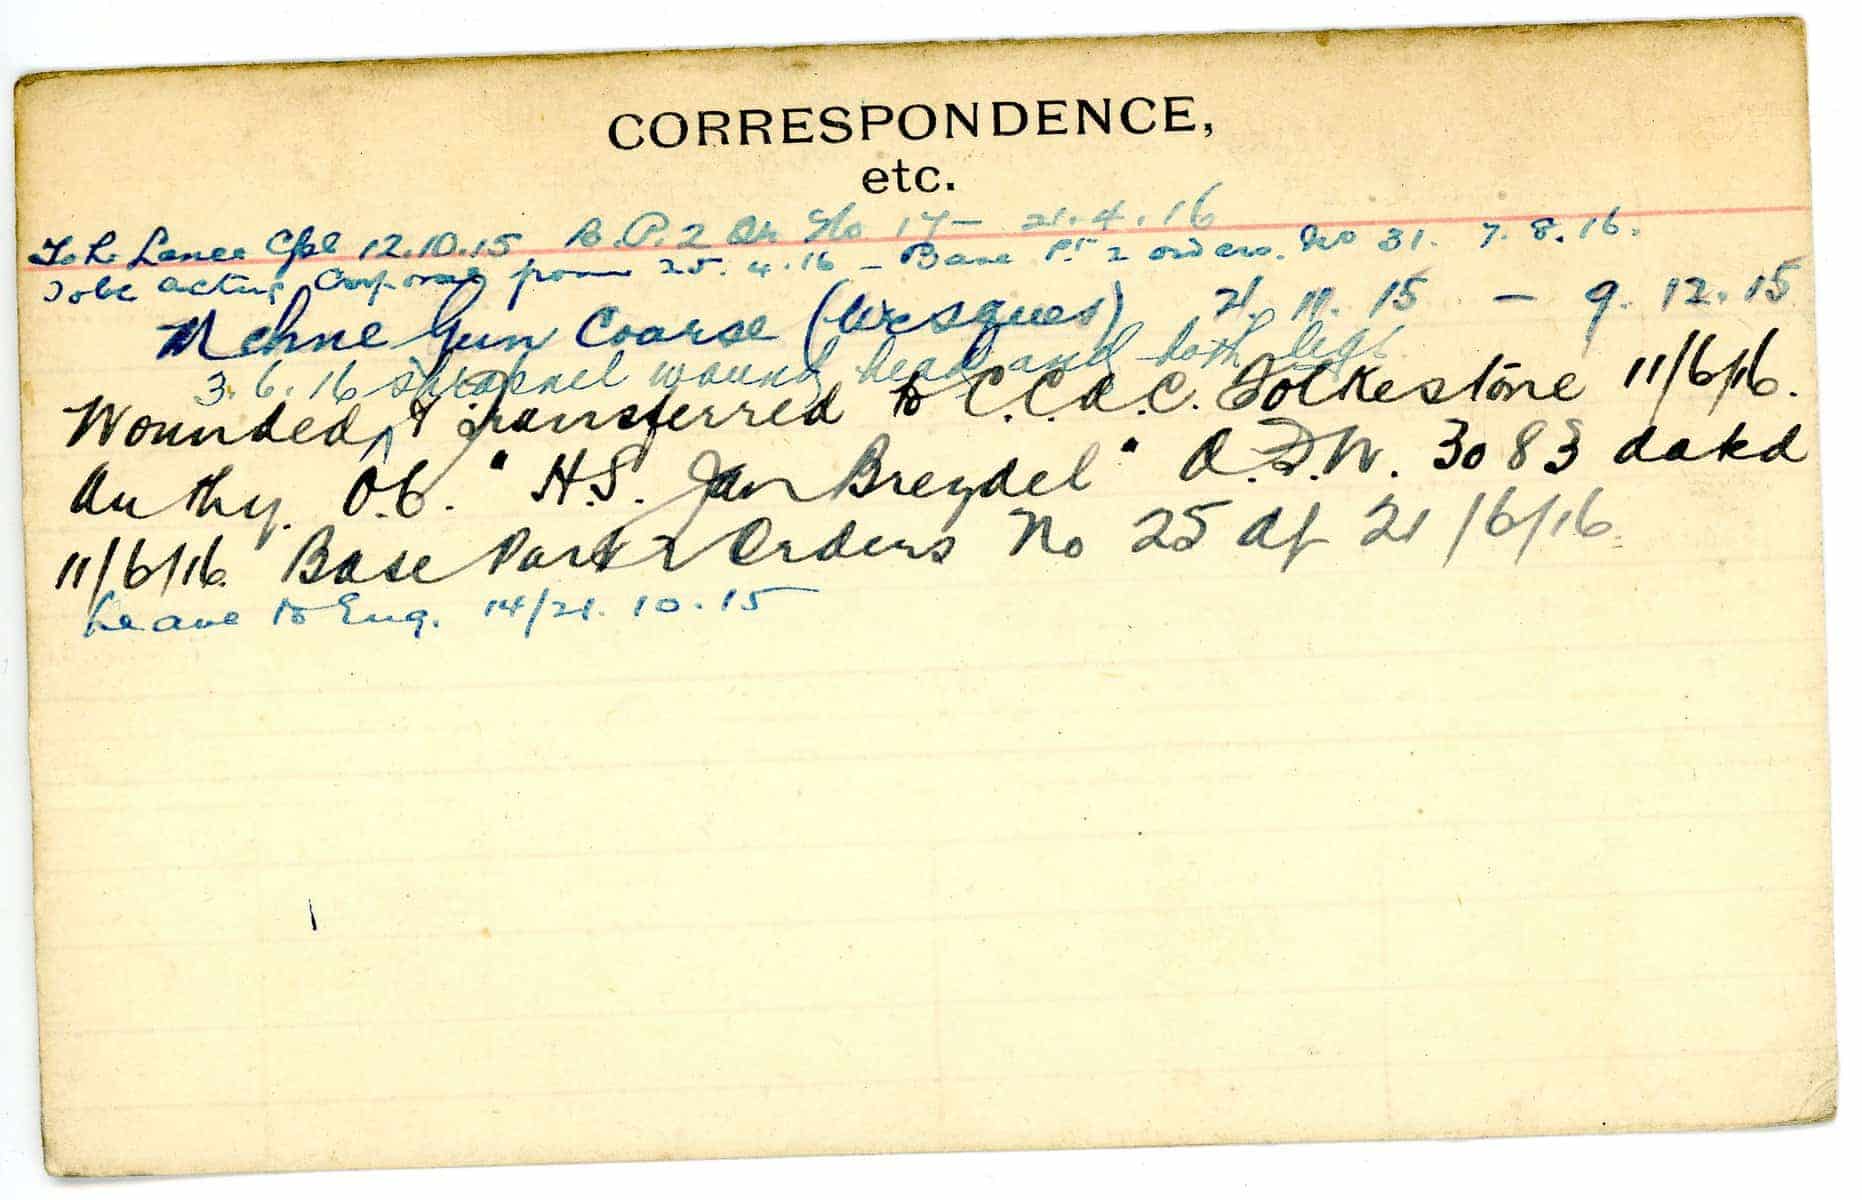 CORRESPONDENCE,
etc.
To be Lance Cpl 12.10.15 B.P. 2 Or No 17 - 21.4.16
To be acting Corporal from 25.4.16 - Base Pt 2 orders. No 31. 7.8.16.
Mchne Gun Coarse (Wisques) 21.11.15 - 9.12.15
3.6.16 shrapnel wound head and both legs
Wounded ^ & Transferred to C.C.A.C. Folkestone 11/6/16.
Authy. O.C. "H.S. Jan Breydel" A.F.W. 3083 dated
11/6/16 Base Part 2 Orders No 25 of 21/6/16.
Leave to Eng. 14/21.10.15